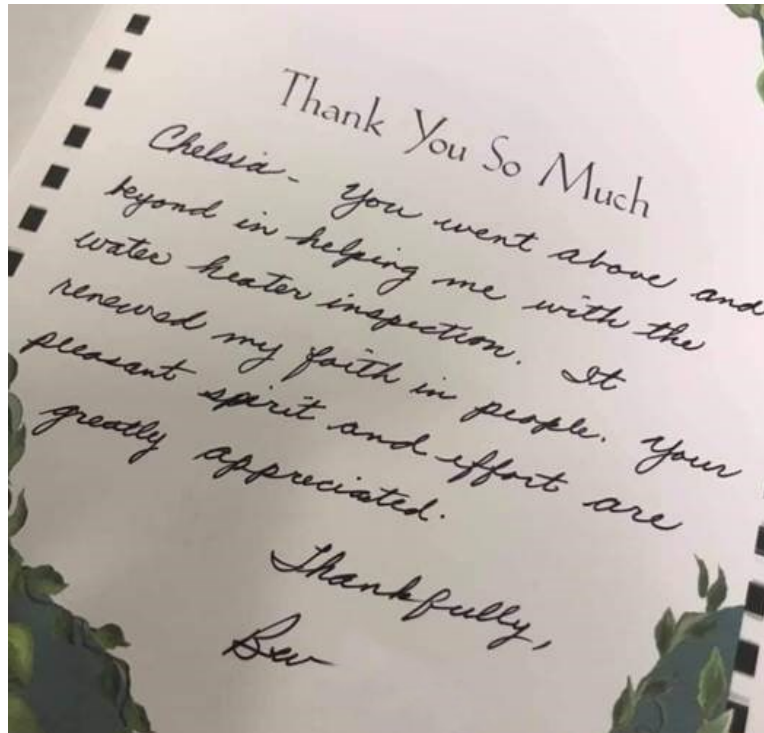 Thank You So Much
Chelsia - You went above and
beyond in helping me with the
water heater inspection. It
renewed my faith in people. Your
pleasant spirit and effort are
greatly appreciated.
Thankfully,
Bev